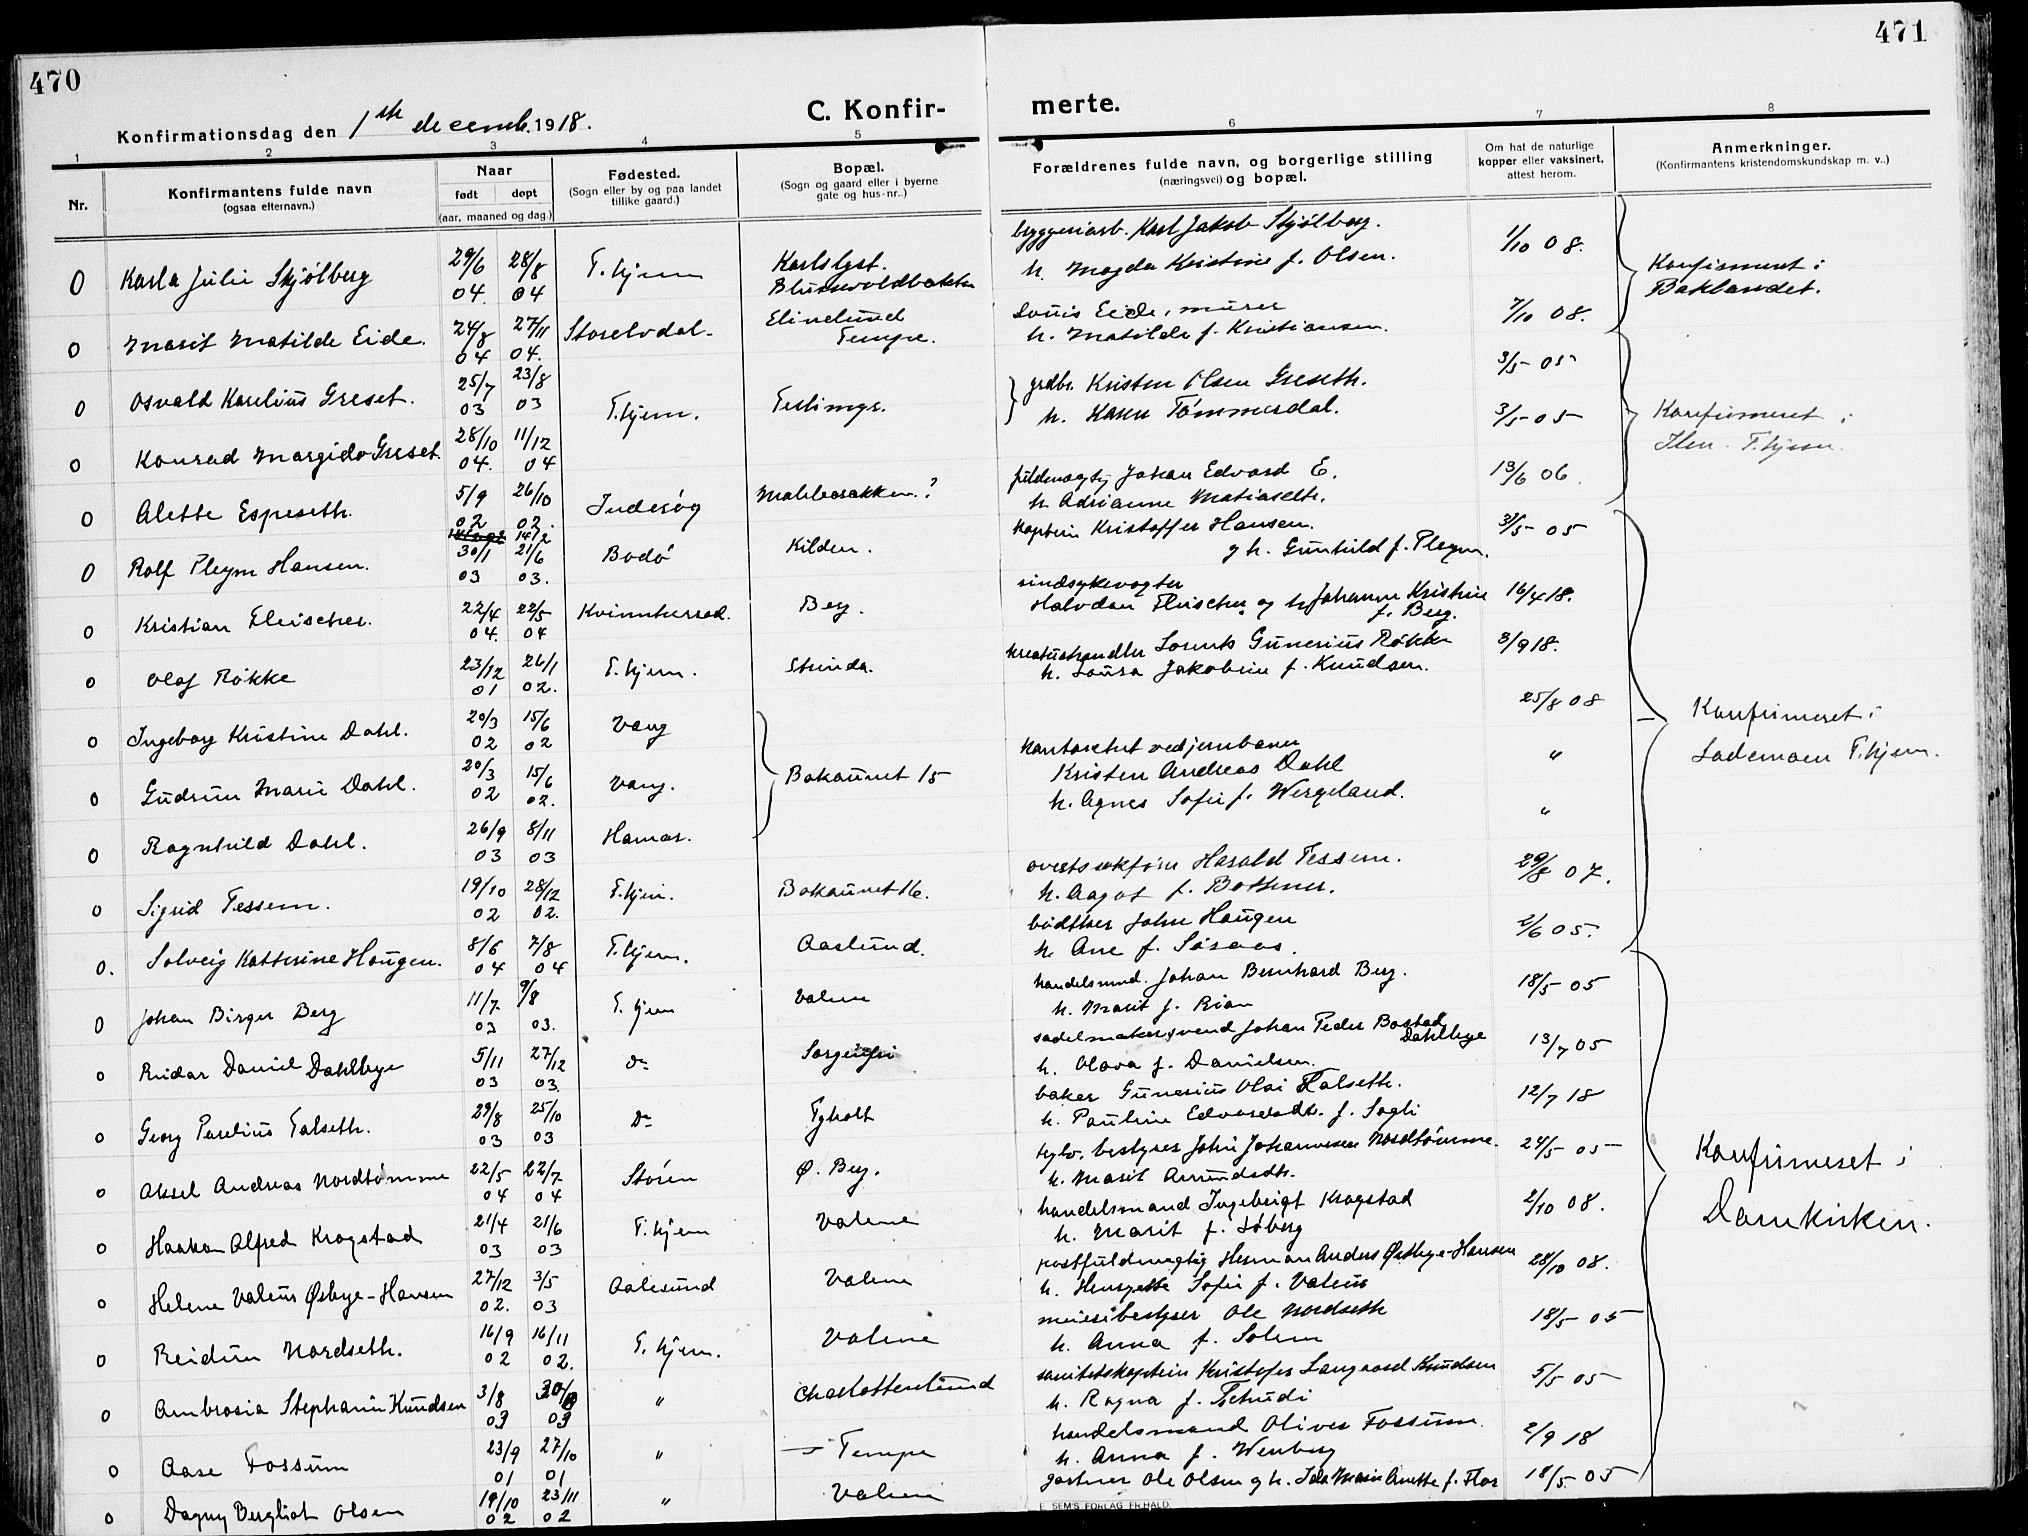 470
471
Konfirmationsdag den 1ste decemb. 1918.
C. Konfir-
merte.
1 2 3 4 5 6 7 8
Nr.
Konfirmantens fulde navn
(ogsaa efternavn.)
Naar
født døpt
(aar, maaned og dag.)
Fødested.
(Sogn eller by og paa landet
tillike gaard.)
Bopæl.
(Sogn og gaard eller i byerne
gate og hus-nr..)
Forældrenes fulde navn, og borgerlige stilling
(næringsvei) og bopæl.
Om hat de naturlige
kopper eller vaksinert,
attest herom.
Anmerkninger.
(Konfirmantens kristendomskundskap m. v..)
0 Karla Julie Skjølberg 29/6 04. 28/8 04 T.hjem Karlslyst. Blussuvoldbakken
bryggeriarb. Karl Jakob Skjølberg. 1/10 08.
h. Magda Kristine f. Olsen.
Konfirmeret i
Baklandet.
0 Marit Matilde Eide. 24/8 04 27/11 04. Storelvdal. Elinelund Tempe.
Louis Eide, murer 7/10 08.
h. Matilde f. Kristiansen.
0 Osvald Karelius Greset. 25/7 03 23/8 03 T.hjem.
grdbr. Kristen Olsen Greseth. 3/5 05
h. Karen Tømmerdal. 3/5 05
Konfirmeret i
Ilen. T.hjem.
0 Konrad Margido Greset. 28/10 04. 11/12 04
0 Alette Espeseth. 5/9 02 26/10 02. Inderøy ?
fuldmægtig Johan Edvard E. 13/6 06.
h. Adrianne Matiasdtr.
0 Rolf Pleym Hansen. 30/1 03 21/6 03. Bodø Kilden.
kaptein Kristoffer Hansen. 31/5 05
og h. Gunhild f. Pleym.
0 Kristian Fleischer. 22/4 04. 22/5 04 Kvinnherred. Berg.
sindsykevogter
Halvdan Fleischer og h Johanne Kristine f. Berg. 16/4 18.
0 Olaf Røkke 23/12 01 26/1 02. T.hjem. Strinda.
kreaturhandler Lorents Gunerius Røkke 3/9 18.
h. Loura Jakobine f. Knudsen.
0 Ingeborg Kristine Dahl. 20/3 02 15/6 02 Vang
25/8 08
Konfirmeret i
Lademoen T.hjem.
0 Gudrun Marie Dahl. 20/3 02 15/6 02. Vang. Bakaunet 15
kontorchef ved jernbanen
Kristen Andreas Dahl "
h. Agnes Sofie f. Wergeland.
0 Ragnhild Dahl. 26/9 03 8/11 03 Hamar. "
0 Sigrid Tessem. 19/10 02 28/12 02. T.hjem. Bakaunet 16.
overretssakfører Harald Tessem. 29/8 07.
h. Aagot f. Bothner.
0. Solveig Katherine Haugen. 8/6 04 7/8 04 T.hjem. Aaslund.
bødtker John Haugen 2/6 05.
h. Ane f. Søraas.
0 Johan Birger Berg 11/7 03 9/8 03. T.hjem Valene
handelsmd. Johan Bernhard Berg. 18/5 05
h. Marit f. Rian
0 Reidar Daniel Dahlbye 5/11 03 27/12 03. do Sorgenfri
sadelmakersvend Johan Peder Bostad Dahlbye 13/7 05
h. Olava f. Danielsen.
0 Georg Parelius Falseth. 29/8 03 25/10 03 do Tyholt
baker Gunerius Olai Falseth. 12/7 18
h. Pauline Edvardsdtr. f. Sagli
0 Aksel Andreas Nordtømme 22/5 04 22/7 04 Støren Ø. Berg.
teglv. bestyrer John Johannesen Nordtømme. 24/5 05
h. Marit Amundsdtr.
Konfirmeret i
Domkirken.
0 Haakon Alfred Kragstad 21/4 03 21/6 03 T.hjem Valene
handelsmand Ingebrigt Kragstad 2/10 08.
h. Marit f. Søberg
0 Helene Valeur Østbye-Hansen 27/12 02. 3/5 03 Aalesund Valene
postfuldmægtig Herman Anders Østbye-Hansen 28/10 08.
h. Henryette Sofie f. Valeur
0 Reidun Nordseth. 16/9 02 16/11 02. T.hjem. Valene
meieribestyrer Ole Nordseth 18/5 05
h. Anna f. Solem
0 Ambrosia Stephanie Knudsen 3/8 03 03 " Charlottenlund
sanitetskaptein Kristofer Langaard Knudsen 5/5 05
h. Ragna f. Schudi
0 Aase Fossum 23/9 01 27/10 01 " Tempe
handelsmand Oliver Fossum. 2/9 18
h. Anna f. Wenberg
0 Dagny Bergliot Olsen 19/10 02 23/11 02 " Valene
gartner Ole Olsen og h. Ida Marie Anette f. Flor 18/5 05
E. SEM'S FORLAG FR.HALD